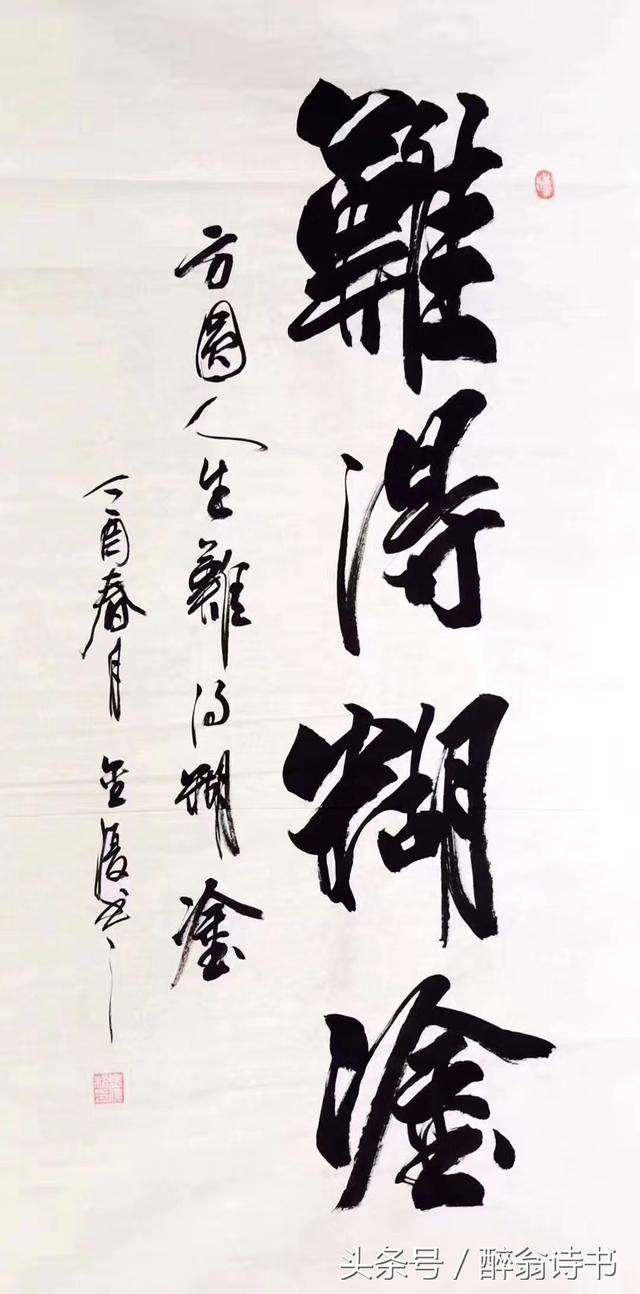 難得糊塗
方圓人生難得糊塗
丁酉春月 金夏书
头条号 / 醉翁诗书